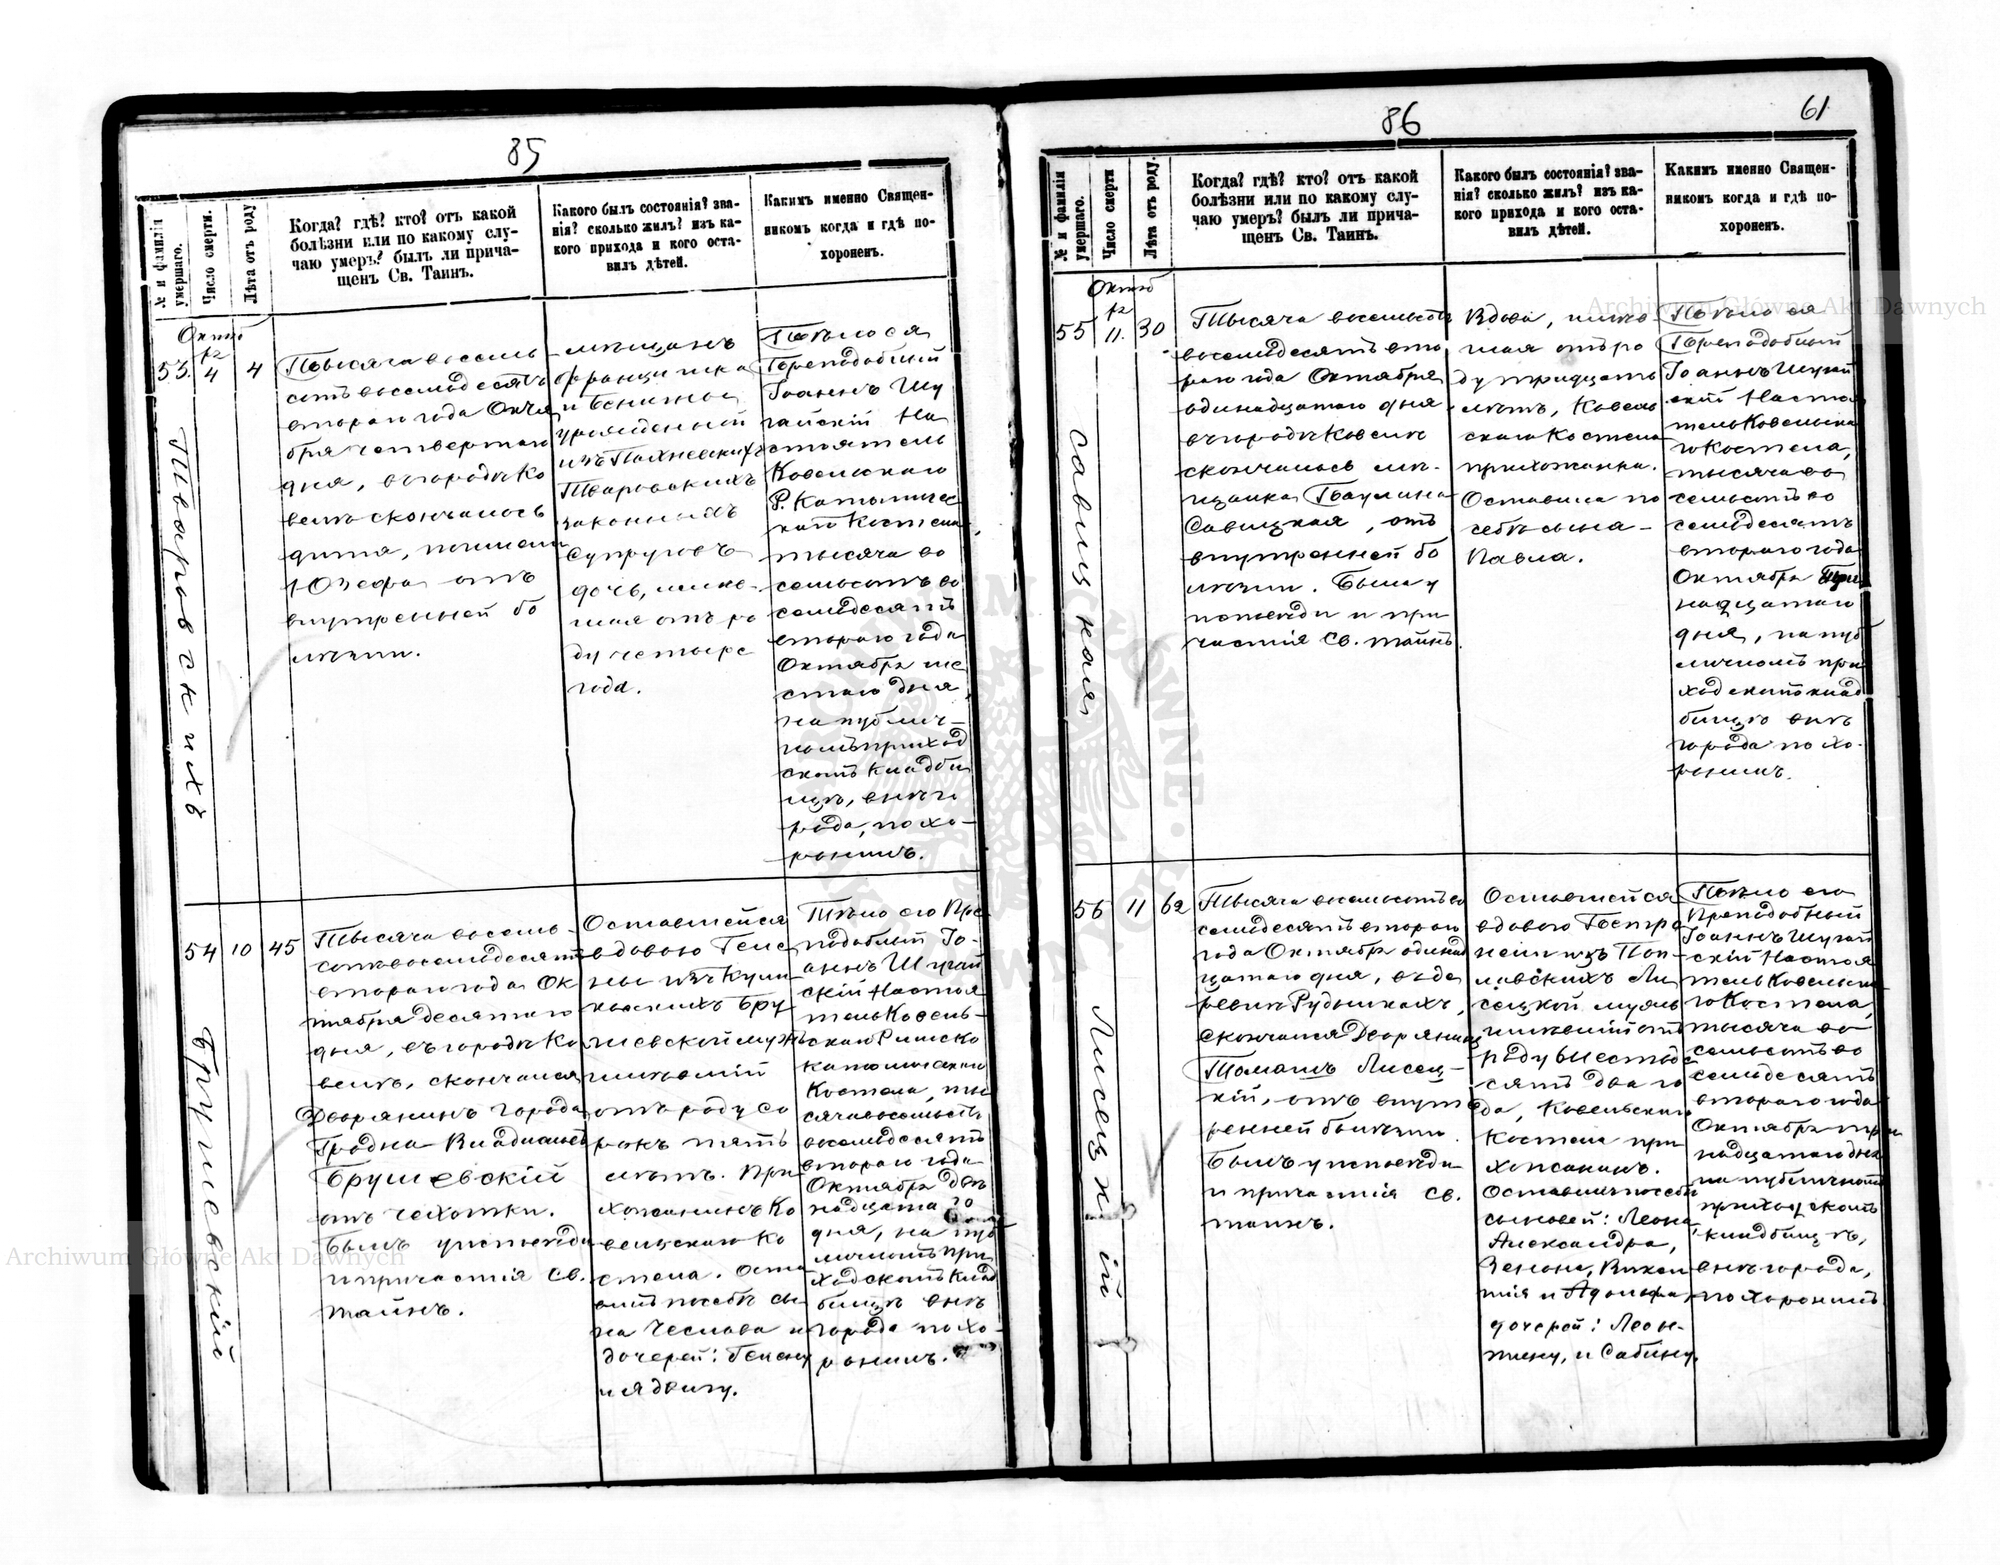 85
№ и фамилія умершаго.
Число смерти.
Лѣта отъ роду
Когда? гдѣ? кто? отъ какой
болѣзни или по какому слу-
чаю умеръ? былъ ли прича-
щенъ Св. Таинъ.
Какого былъ состоянія? зва-
нія? сколько жилъ? изъ ка-
кого прихода и кого оста-
вилъ дѣтей.
Какимъ именно Священ-
никомъ когда и гдѣ по-
хороненъ.
Октяб
ря
53.
4
4
Тваровскихъ
Тысяча восемь
сотъ восемдесятъ
второго года Октя
бря четвертаго
дня, въ городѣ Ко
велѣ скончалось
дитя, по имени
Юзефа отъ
внутренней бо
лѣзни.
мѣщанъ
Францишка
и Бенигны
урожденной
изъ
Тваровскихъ
законныхъ
супруговъ
дочь, имѣв-
шая отъ ро
ду четыре
года.
Тѣло ея
Преподобный
Іоаннъ Шу
гайскій На
стоятель
Ковельскаго
Р. Католичес
каго Костела,
тысяча во
семьсотъ во
семдесятъ
втораго года
Октября ше
стаго дня,
на публич-
номъ приход
скомъ кладби
щѣ, внѣ го
рода, похо-
ронилъ.
54
10
45
Брушевскій
Тысяча восемь-
сотъ восемдесятъ
втораго года Ок
тября десятаго
дня, въ городѣ Ко
велѣ, скончался
Дворянинъ города
Гродна Владиславъ
Брушевскій
отъ чахотки.
Былъ у исповѣди
и причастія Св.
таинъ.
Оставшейся
вдовою Геле
ны изъ Кули
ковскихъ Бру
шевской мужъ
имѣвшій
отъ роду со
рокъ пять
лѣтъ. При
хожанинъ Ко
вельскаго Ко
стела. Оста
вилъ по себѣ сы
на Чеслава и
дочерей: Гелену
и Ядвигу.
Тѣло его Пре
подобный Іо-
аннъ Шугай
скій Настоя
тель Ковель-
скаго Римско
католическаго
Костела, ты
сяча восемьсотъ
восемдесятъ
втораго года
Октября две
надцата го
дня, на пуб
личномъ при
ходскомъ клад
бищѣ внѣ
города похо-
ронилъ.
86
61
№ и фамилія умершаго.
Число смерти
Лѣта отъ роду.
Когда? гдѣ? кто? отъ какой
болѣзни или по какому слу-
чаю умеръ? былъ ли прича-
щенъ Св. Таинъ.
Какого былъ состоянія? зва-
нія? сколько жилъ? изъ ка-
кого прихода и кого оста-
вилъ дѣтей.
Какимъ именно Священ-
никомъ когда и гдѣ по-
хороненъ.
Октяб
ря
55
11.
30
Савицкая
Тысяча восемьсотъ
восемдесятъ вто
раго года Октября
одинадцатаго дня
въ городѣ Ковелѣ
скончалась мѣ-
щанка Паулина
Савицкая, отъ
внутренней бо
лѣзни. Была у
исповѣди и при
частія Св. таинъ.
Вдова, имѣв
шая отъ ро
ду тридцать
лѣтъ, Ковель
скаго Костела
прихожанка.
Оставила по
себѣ сына -
Павла.
Тѣло ея
Преподобный
Іоаннъ Шугай
скій Настоя
тель Ковельска
го Костела,
тысяча во
семьсотъ во
семдесятъ
втораго года
Октября три
надцатаго
дня, на пуб
личномъ при
ходскомъ клад
бищѣ внѣ
города похо-
ронилъ.
56
11
62
Лисецкій
Тысяча восемьсотъ во
семдесятъ втораго
года Октября одинад
цатаго дня, въ де
ревнѣ Рудникахъ,
скончался Дворянинъ
Томашъ Лисец-
кій, отъ внут
ренней болѣзни.
Былъ у исповѣди
и причастія Св.
таинъ.
Оставшейся
вдовою Петро
нели изъ
Ли
сецкой мужъ
имѣвшій отъ
роду шестьде
сятъ два го
да, Ковельскаго
Костела при
хожанинъ.
Оставилъ по себѣ
сыновей: Леона,
Александра,
Зенона, Викен
тія и Адольфа,
дочерей: Леон-
тину, и Сабину.
Тѣло его
Преподобный
Іоаннъ Шугай
скій Настоя
тель Ковельска
го Костела,
тысяча во
семьсотъ во
семьдесятъ
втораго года
Октября три
надцатаго дня
на публичномъ
приходскомъ
кладбищѣ,
внѣ города,
похоронилъ
Archiwum Główne Akt Dawnych
Archiwum Główne Akt Dawnych